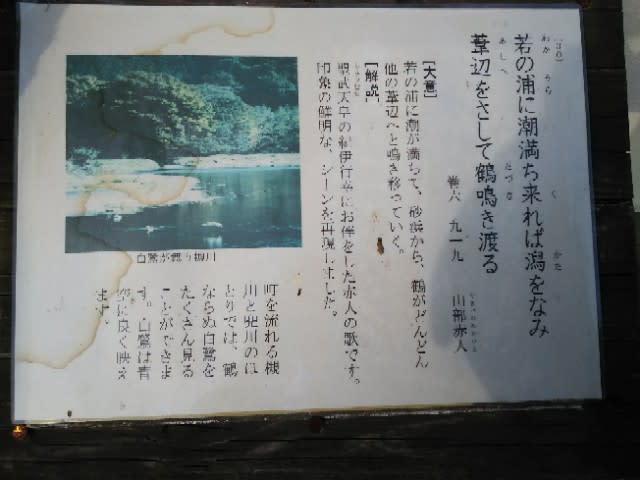 （30）
若の浦に潮満ち来れば潟をなみ
わか うら く かた
葦辺をさして鶴鳴き渡る
あしへ たづ
巻六 九一九 山部赤人
やまべのあかひと
［大意］
若の浦に潮が満ちて、砂浜から、鶴がどんどん
他の葦辺へと鳴き移っていく。
［解説］
聖武天皇の紀伊行幸にお伴をした赤人の歌です。
印象の鮮明な、シーンを再現しました。
白鷺が舞う槻川
町を流れる槻
川と兜川のほ
とりでは、鶴
ならぬ白鷺を
たくさん見る
ことができま
す。白鷺は青
空に良く映え
ます。